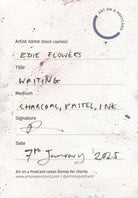 ART ON A POSTCARD
Artist name (block capitals)
EDIE FLOWERS
Title
WAITING
Medium
CHARCOAL, PASTEL, INK
Signature
Date
7th January 2025
Art on a Postcard raises money for charity
www.artonapostcard.com | @artonapostcard